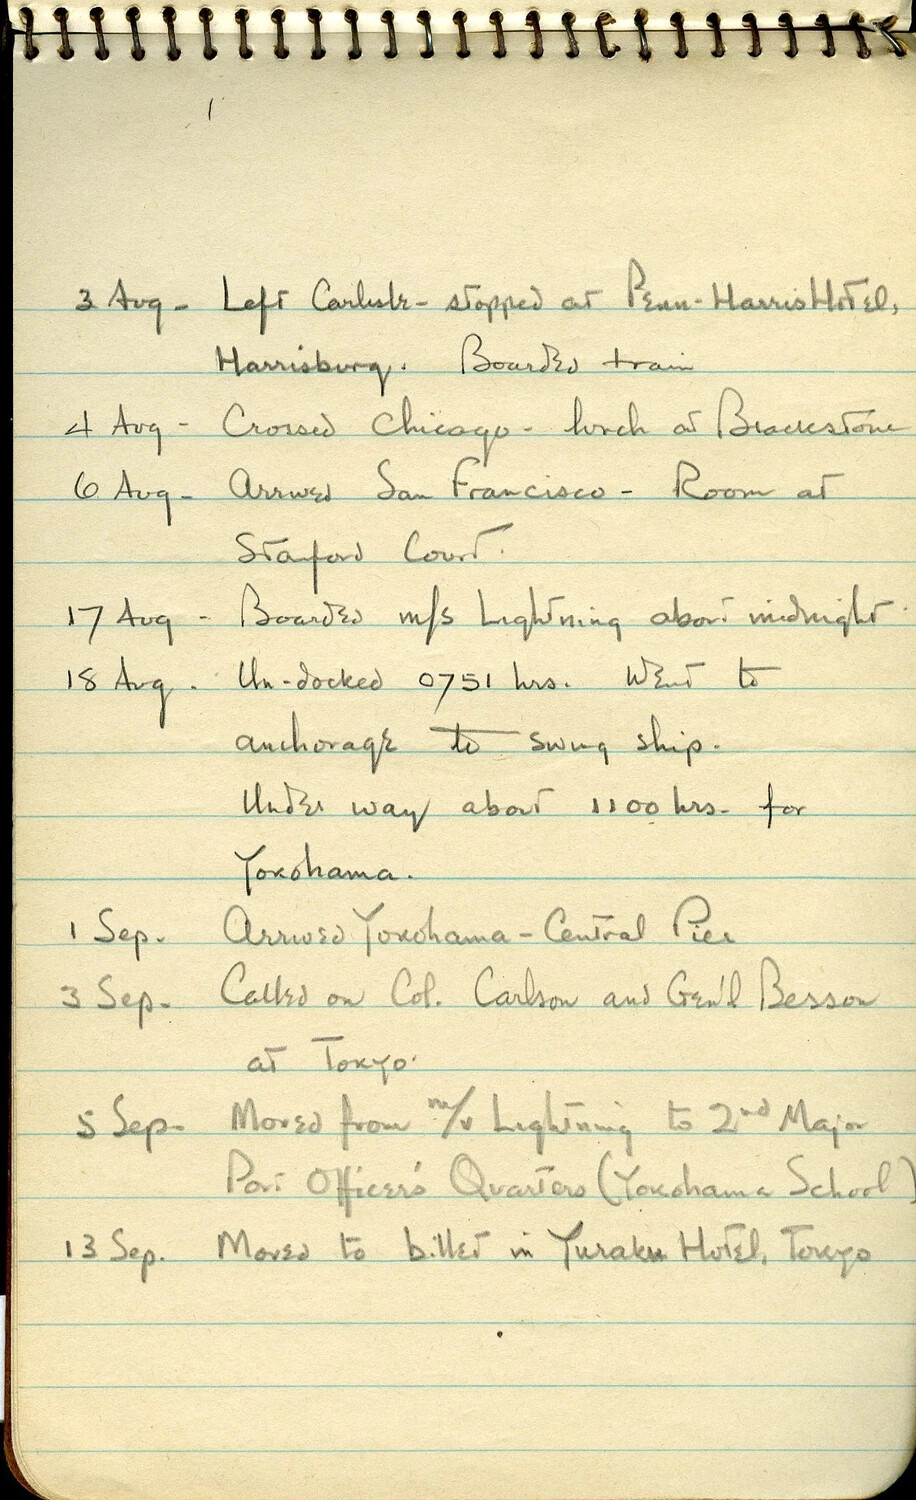 1
3 Aug - Left Carlisle - stopped at Penn-Harris Hotel,
Harrisburg. Boarded train
4 Aug - Crossed Chicago - lunch at Blackstone
6 Aug - Arrived San Francisco - Room at
Stanford Court.
17 Aug - Boarded m/s Lightning about midnight.
18 Aug. Un-docked 0751 hrs. Went to
anchorage to swing ship.
Under way about 1100 hrs. for
Yokohama.
1 Sep. Arrived Yokohama - Central Pier
3 Sep. Called on Col. Carlson and Gen'l Besson
at Tokyo.
5 Sep. Moved from m/v Lightning to 2nd Major
Port Officer's Quarters (Yokohama School)
13 Sep. Moved to billet in Yuraku Hotel, Tokyo